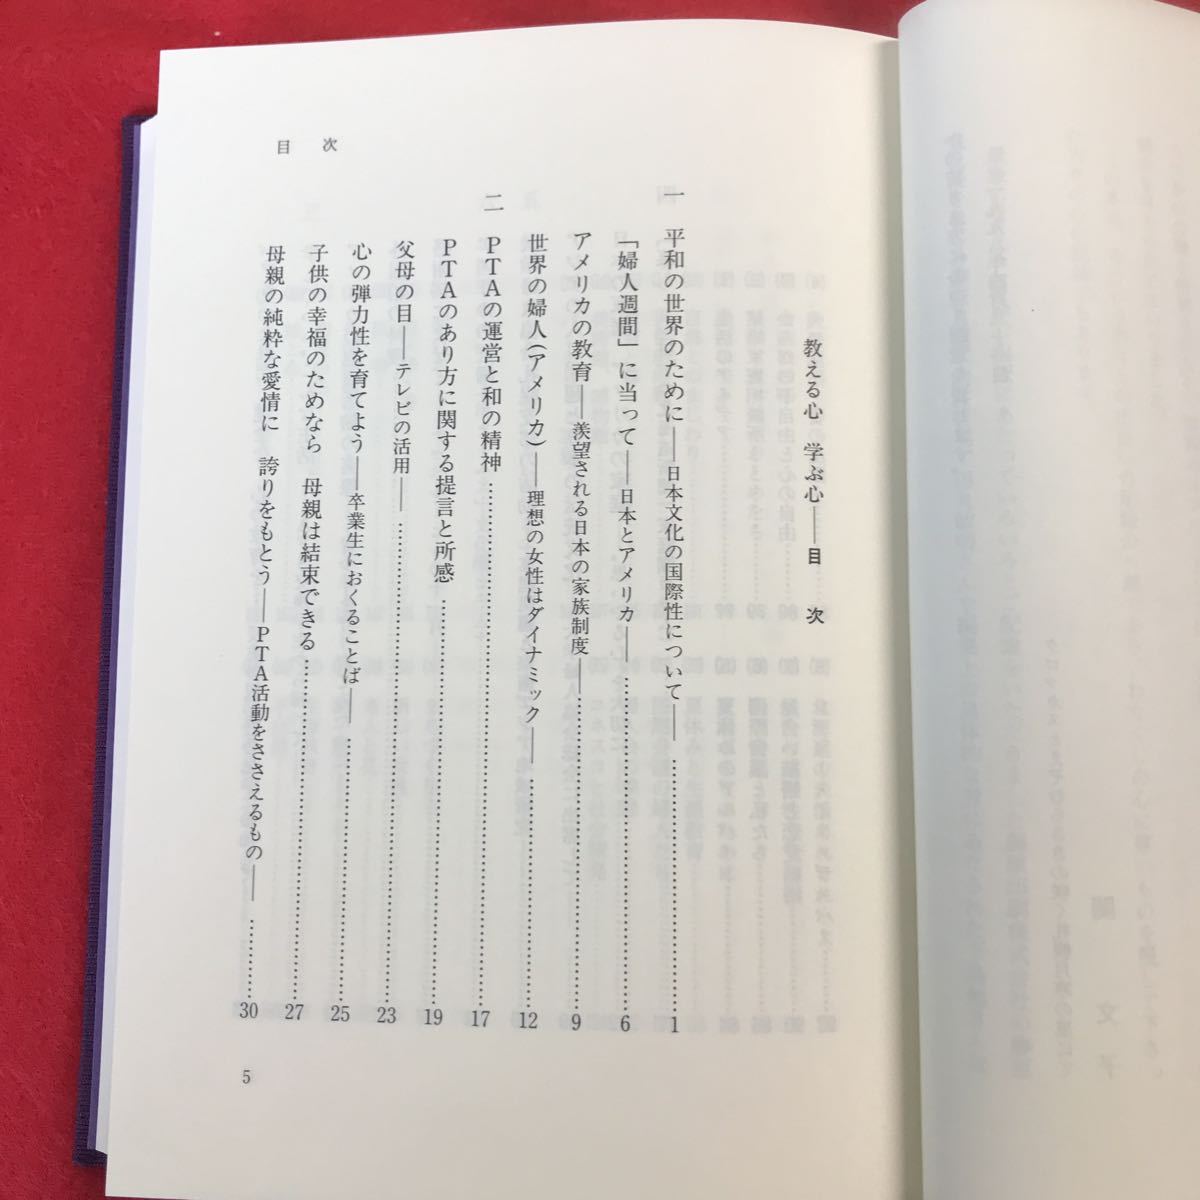 目次
教える心 学ぶ心――目次
一 平和の世界のために――日本文化の国際性について――……………1
「婦人週間」に当って――日本とアメリカ――……………6
アメリカの教育――羨望される日本の家族制度――……………9
世界の婦人(アメリカ)――理想の女性はダイナミック――……………12
二 PTAの運営と和の精神……………17
PTAのあり方に関する提言と所感……………19
父母の目――テレビの活用――……………23
心の弾力性を育てよう――卒業生におくることば――……………25
子供の幸福のためなら 母親は結束できる……………27
母親の純粋な愛情に 誇りをもとう――PTA活動をささえるもの――……………30
5